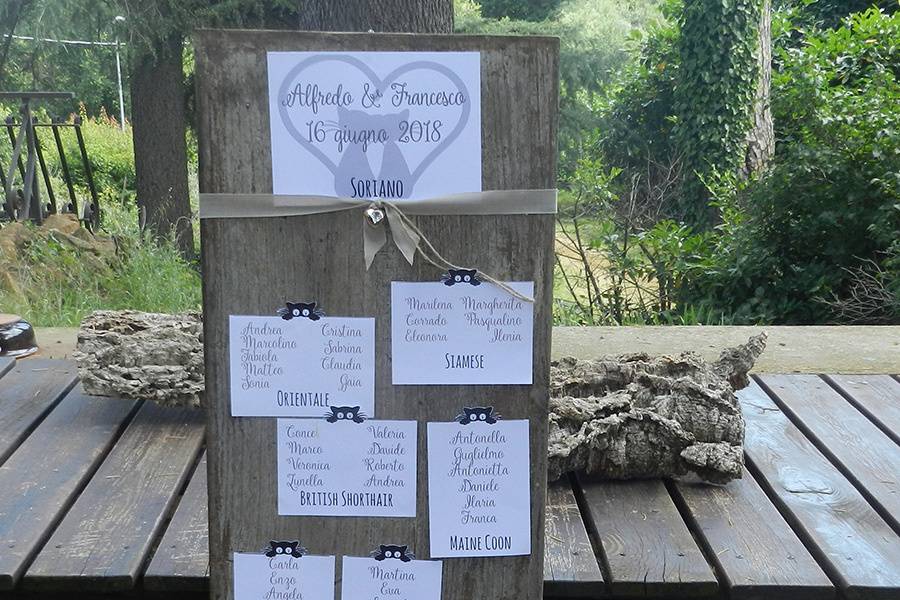 Alfredo & Francesco
16 giugno 2018
SORIANO
Marilena Margherita
Corrado Pasqualino
Eleonora Ilenia
SIAMESE
Andrea Cristina
Marcolino Sabrina
Fabiola Claudia
Matteo Gaia
Sonia
ORIENTALE
Valeria
Marco Davide
Veronica Roberto
Lunella Andrea
BRITISH SHORTHAIR
Antonella
Guglielmo
Antonietta
Daniele
Ilaria
Franca
MAINE COON
Carla
Enzo
Angela
Martina
Eva